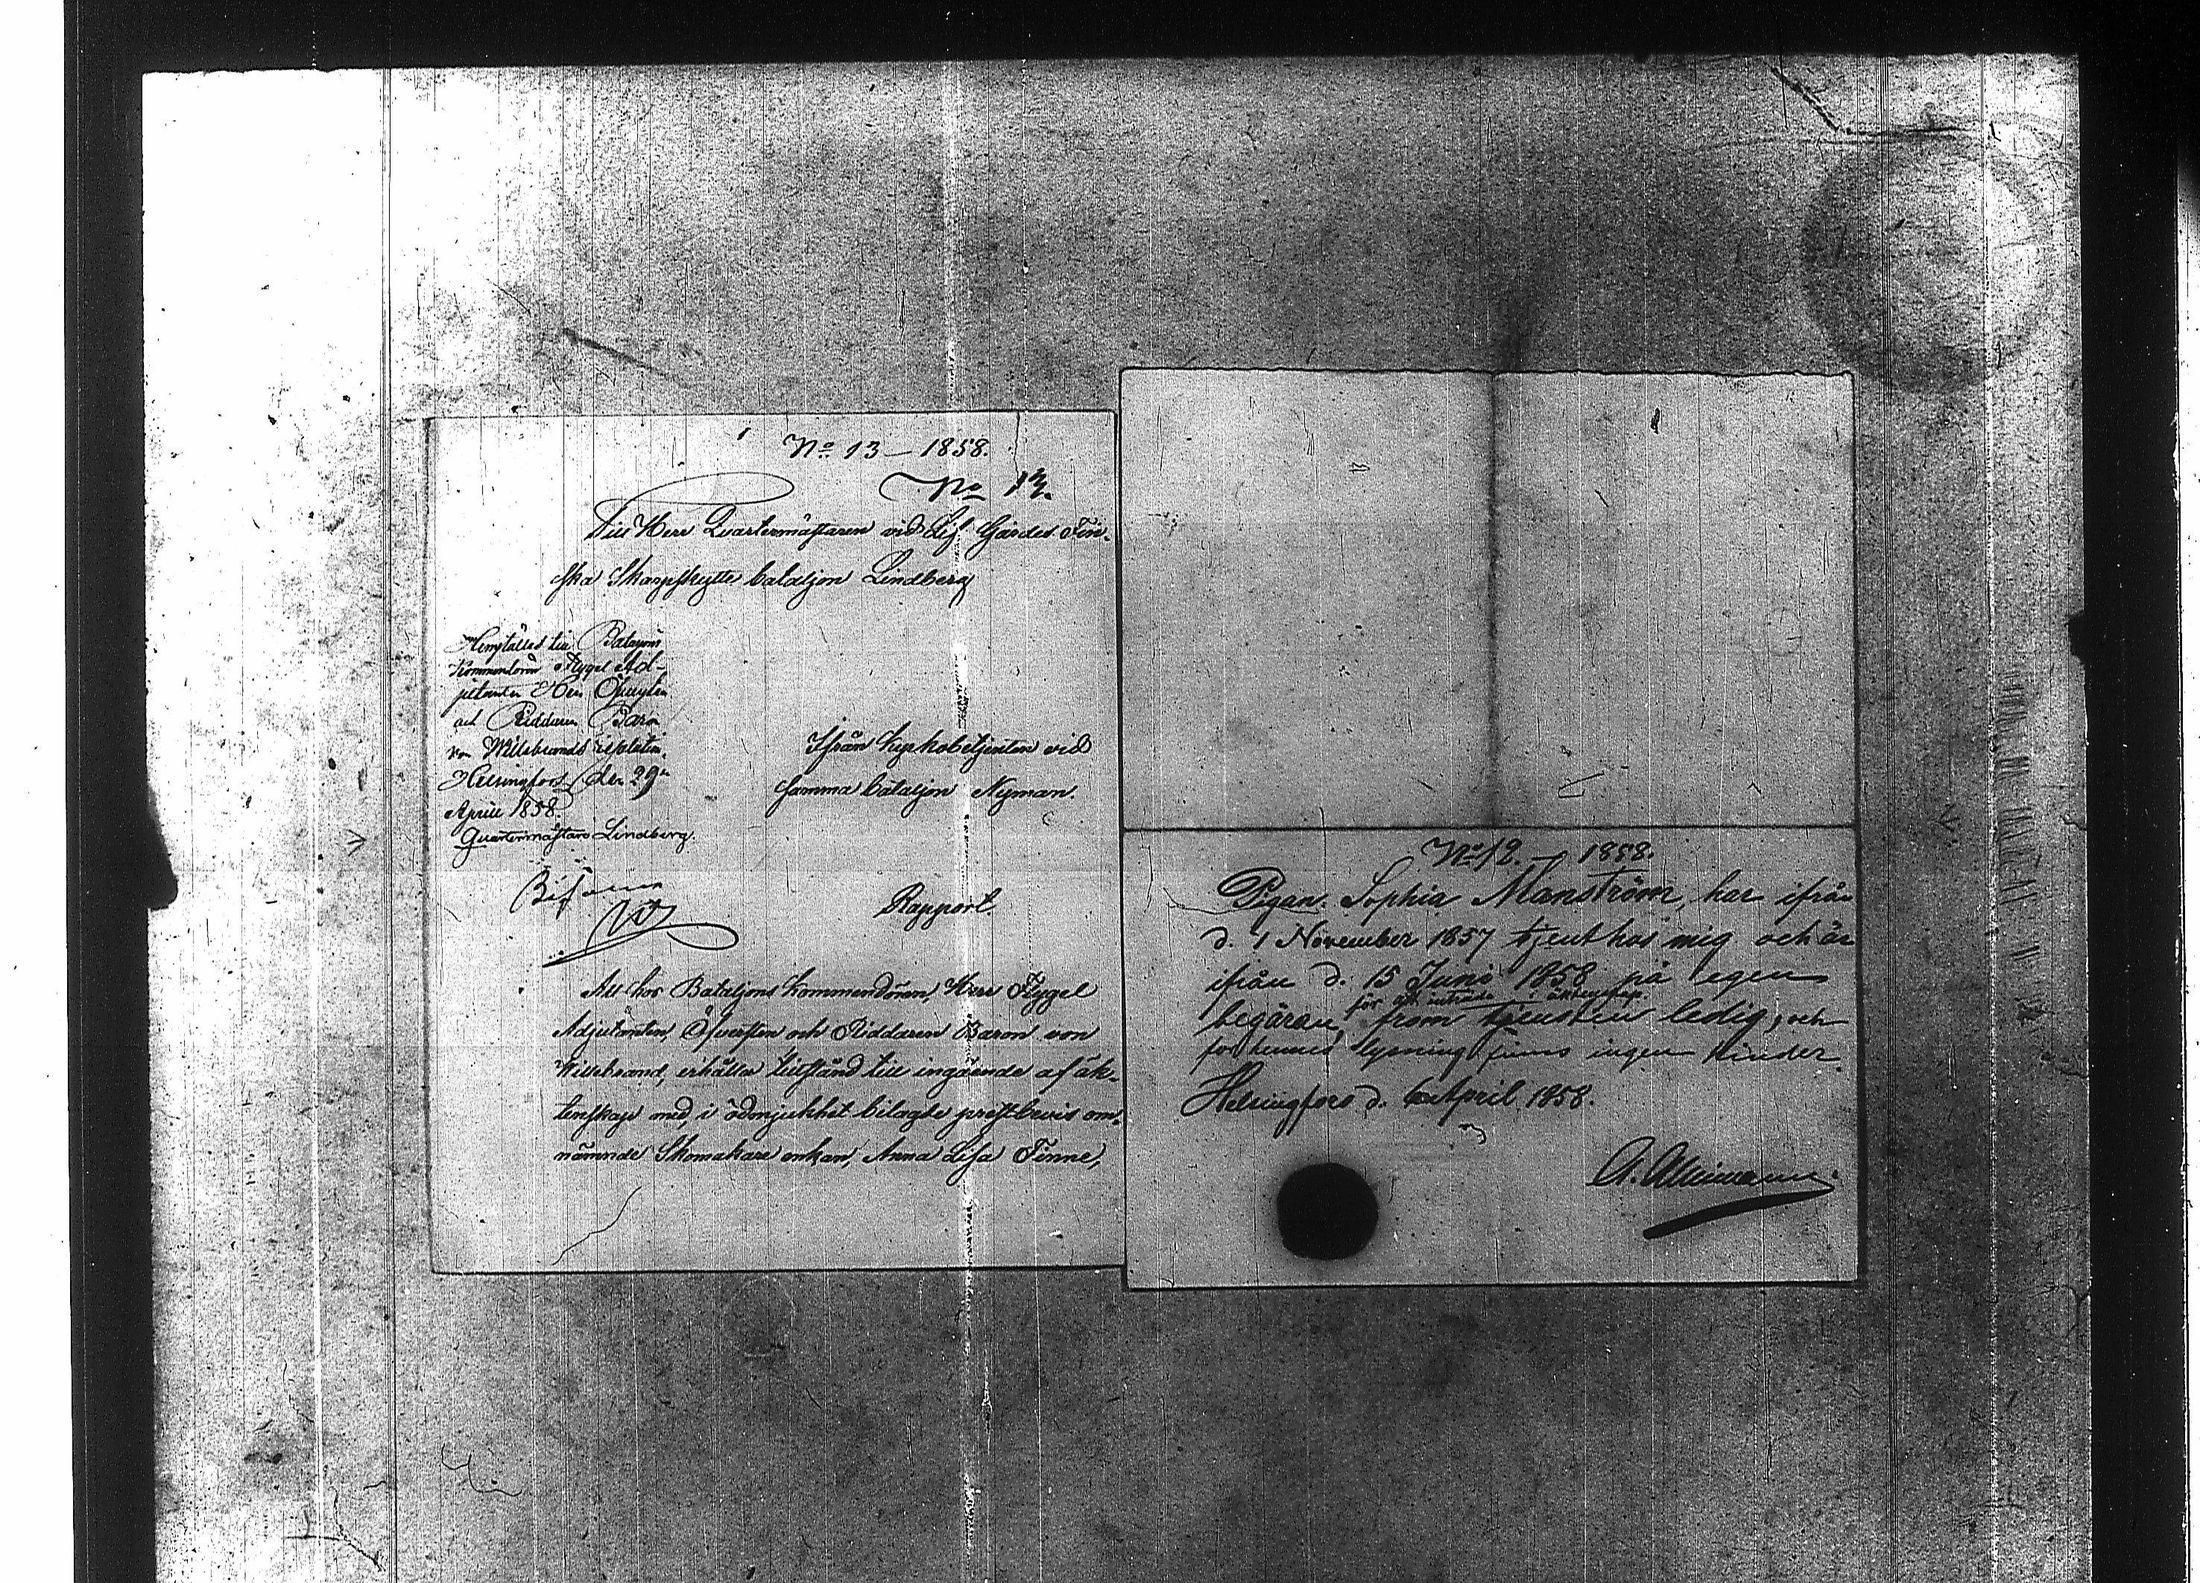 No 13 – 1858.
No 13.
Till Herr Quartermästaren vid Lif Gardes Fin-
ska Skarpskytte bataljon Lindberg
Hemställes till Bataljons
Kommendören Flygel Ad-
jutanten Herr Öfversten
och Riddaren Baron
von Willebrands resolution.
Helsingfors den 29n
April 1858.
Quartermästare Lindberg.
Bifalles
Ifrån Kyrkobetjenten vid
samma bataljon Nyman.
Rapport.
Att hos Bataljons Kommendören, Herr Flygel
Adjutanten, Öfversten och Riddaren Baron von
Willebrand, erhålla tillstånd till ingående af äk-
tenskap med, i ödmjukhet bilagde prestbevis om-
nämnde Skomakare enkan, Anna Lisa Finne,
No 12. – 1858.
Pigan Sophia Manström, har ifrån
d. 1 November 1857 tjent hos mig och är
ifrån d. 15 Juni 1858 på egen
för att inträda i äktenskap
begäran from tjensten ledig, och
för hennes lysning finns ingen hinder.
Helsingfors d. 6 April 1858.